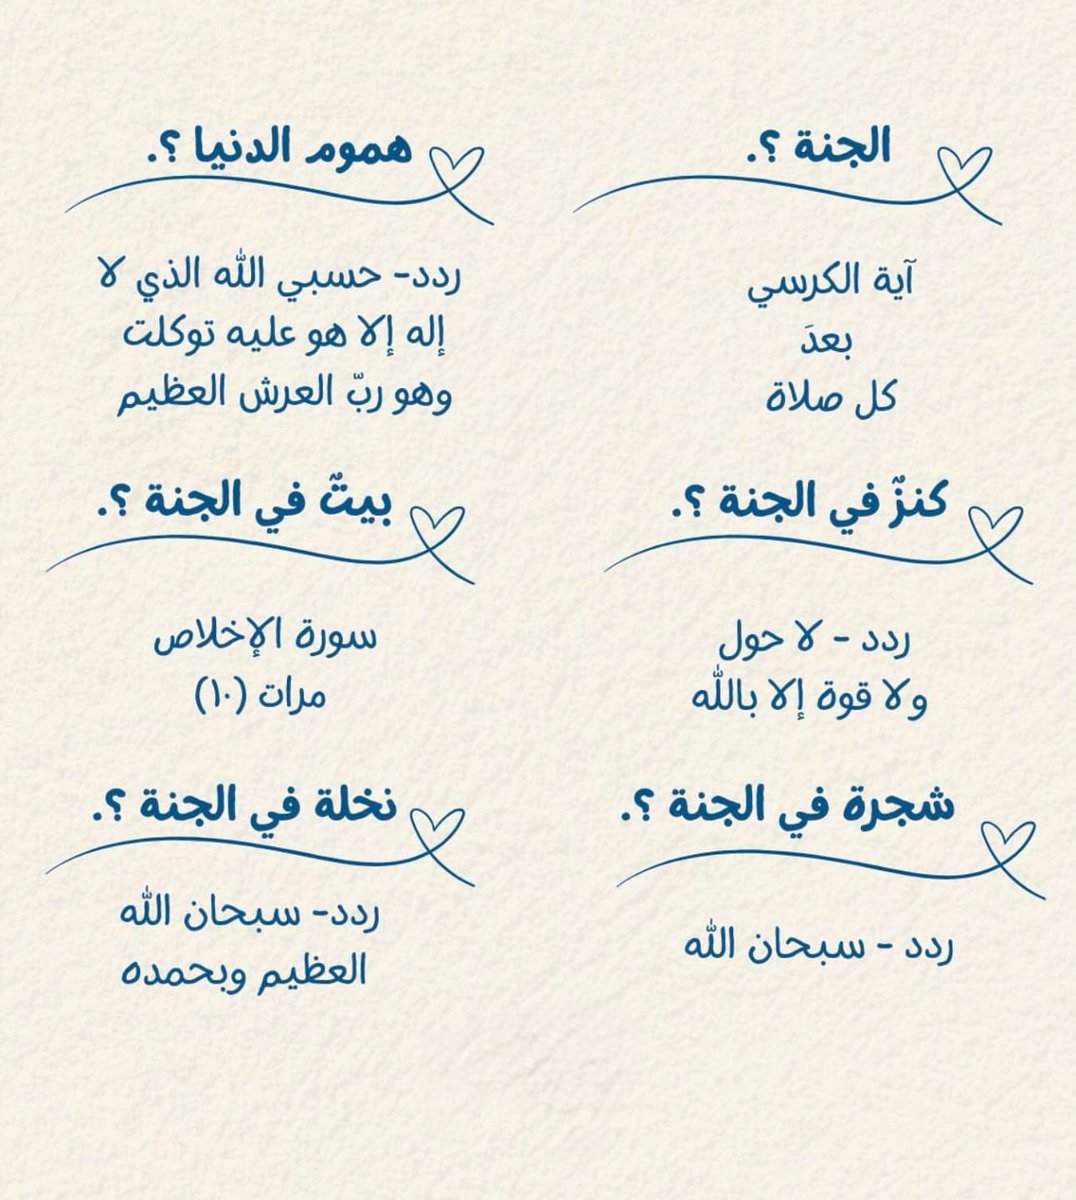 الجنة ؟.
آية الكرسي
بعدَ
كل صلاة
هموم الدنيا ؟.
ردد- حسبي الله الذي لا
إله إلا هو عليه توكلت
وهو ربّ العرش العظيم
كنزٌ في الجنة ؟.
ردد - لا حول
ولا قوة إلا بالله
بيتٌ في الجنة ؟.
سورة الإخلاص
مرات (١٠)
شجرة في الجنة ؟.
ردد - سبحان الله
نخلة في الجنة ؟.
ردد- سبحان الله
العظيم وبحمده